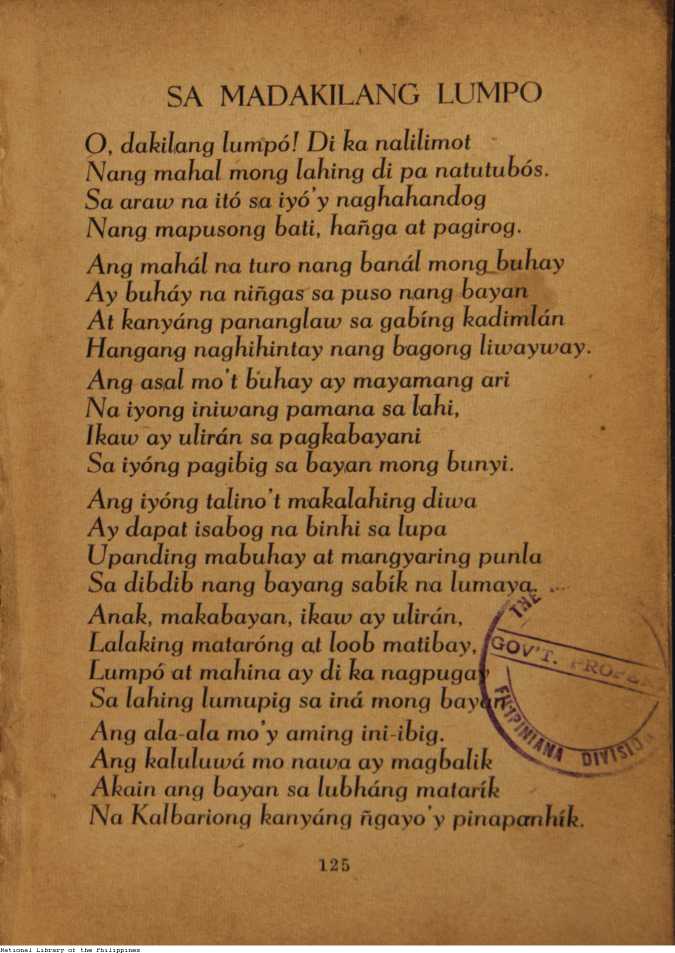 SA MADAKILANG LUMPO
O, dakilang lumpó! Di ka nalilimot
Nang mahal mong lahing di pa natutubós.
Sa araw na itó sa iyó'y naghahandog
Nang mapusong bati, hañga at pagirog.
Ang mahál na turo nang banál mong buhay
Ay buháy na niñgas sa puso nang bayan
At kanyáng pananglaw sa gabíng kadimlán
Hangang naghihintay nang bagong liwayway.
Ang asal mo't buhay ay mayamang ari
Na iyong iniwang pamana sa lahi,
Ikaw ay ulirán sa pagkabayani
Sa iyóng pagibig sa bayan mong bunyi.
Ang iyóng talino't makalahing diwa
Ay dapat isabog na binhi sa lupa
Upanding mabuhay at mangyaring punla
Sa dibdib nang bayang sabík na lumaya.
Anak, makabayan, ikaw ay ulirán,
Lalaking mataróng at loob matibay,
Lumpó at mahina ay di ka nagpugay
Sa lahing lumupig sa iná mong bayan
Ang ala-ala mo'y aming ini-ibig.
Ang kaluluwá mo nawa ay magbalik
Akain ang bayan sa lubháng matarík
Na Kalbariong kanyáng ñgayo'y pinapanhík.
THE
GOV'T. PROPERTY
FILIPINIANA DIVISION
125
National Library of the Philippines